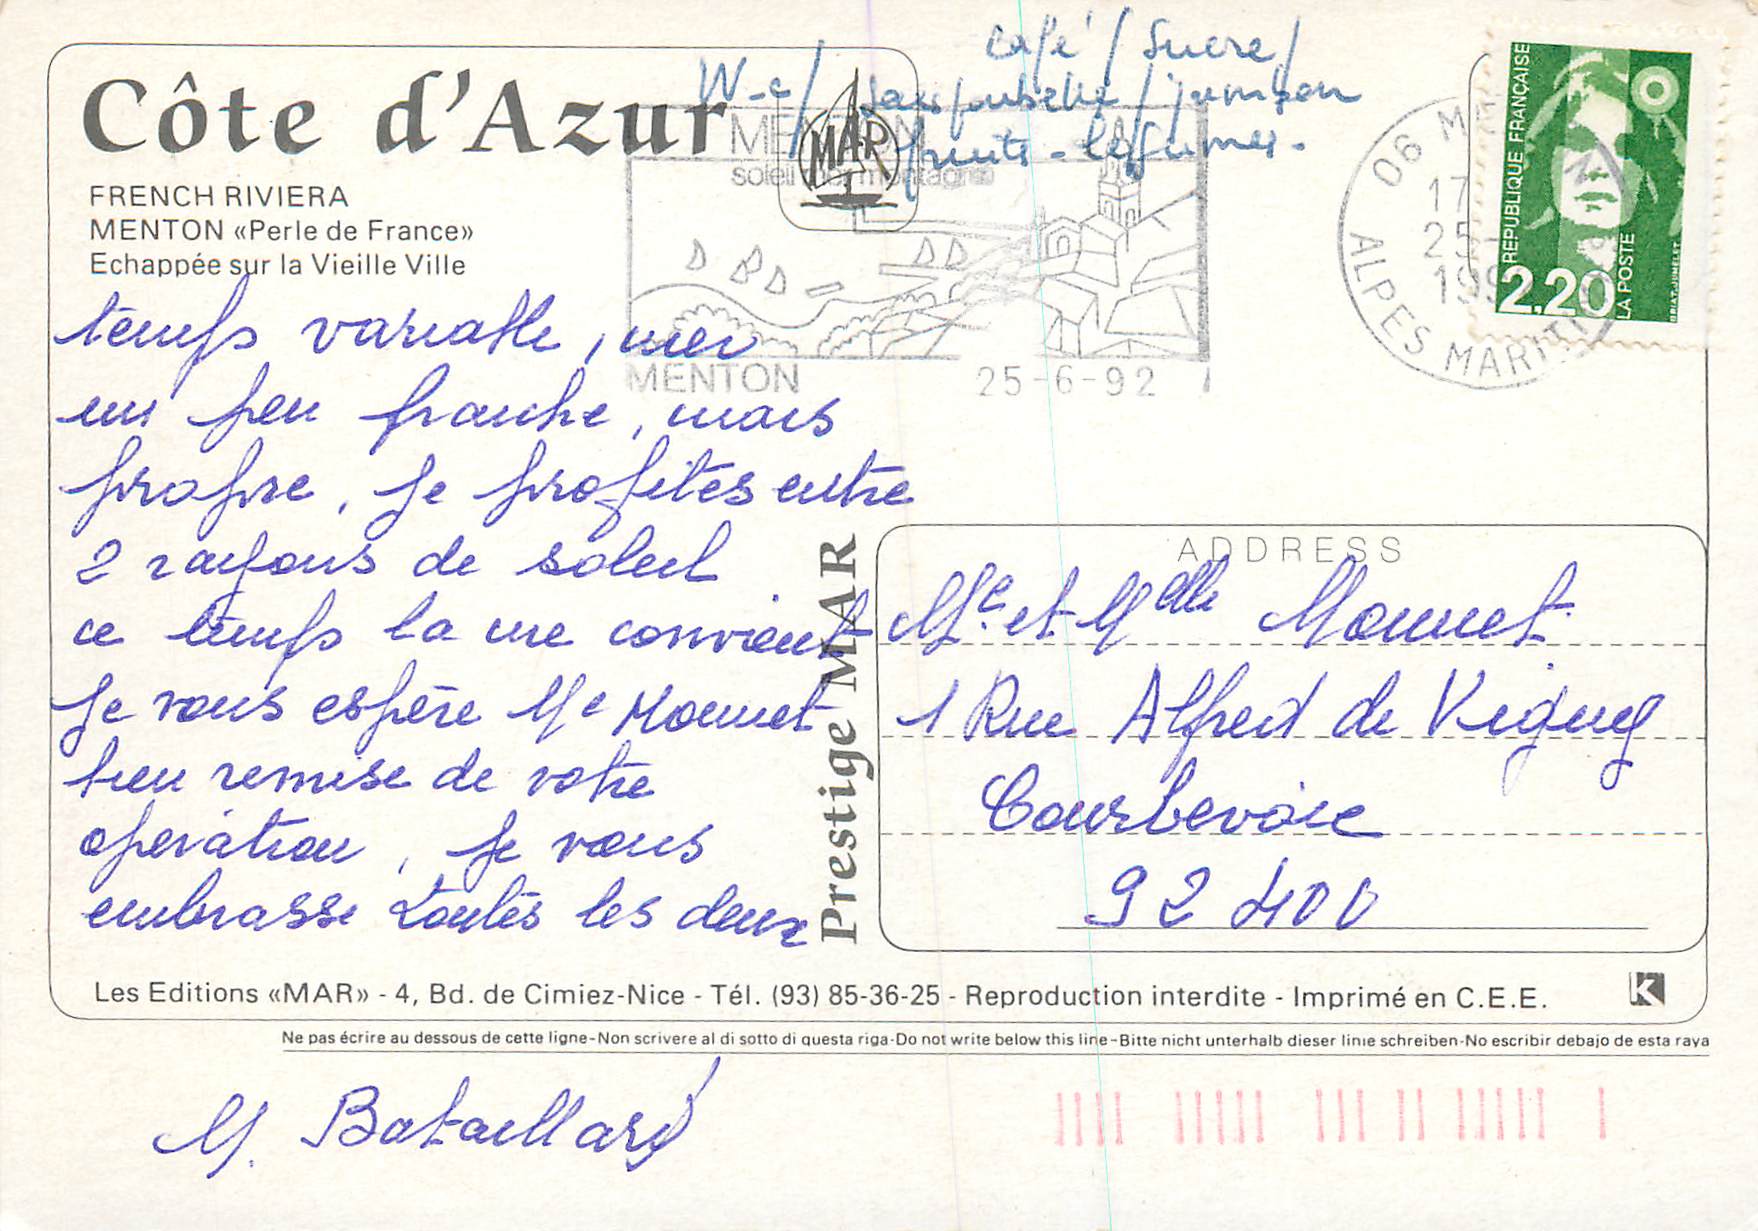 Café / Sucre /
W-c / sacs poubelle / jambon
fruits - légumes -
Côte d'Azur
FRENCH RIVIERA
MENTON «Perle de France»
Echappée sur la Vieille Ville
MAR
MENTON
soleil mer montagne
MENTON 25-6-92
06 MENTON
17
25-
199
ALPES MARITIMES
RÉPUBLIQUE FRANÇAISE
2,20
LA POSTE
BRIAT. JUMELET
temps variable, mer
un peu fraiche, mais
propre, je profites entre
2 rayons de soleil
ce temps la me convient
Je vous espère Me Monnet
bien remise de votre
opération, je vous
embrasse toutes les deux
Prestige MAR
ADDRESS
Me et Melle Monnet
1 Rue Alfred de Vigny
Courbevoie
92 400
Les Editions «MAR» - 4, Bd. de Cimiez-Nice - Tél. (93) 85-36-25 - Reproduction interdite - Imprimé en C.E.E.
K
Ne pas écrire au dessous de cette ligne-Non scrivere al di sotto di questa riga-Do not write below this line-Bitte nicht unterhalb dieser linie schreiben-No escribir debajo de esta raya
M. Bataillard